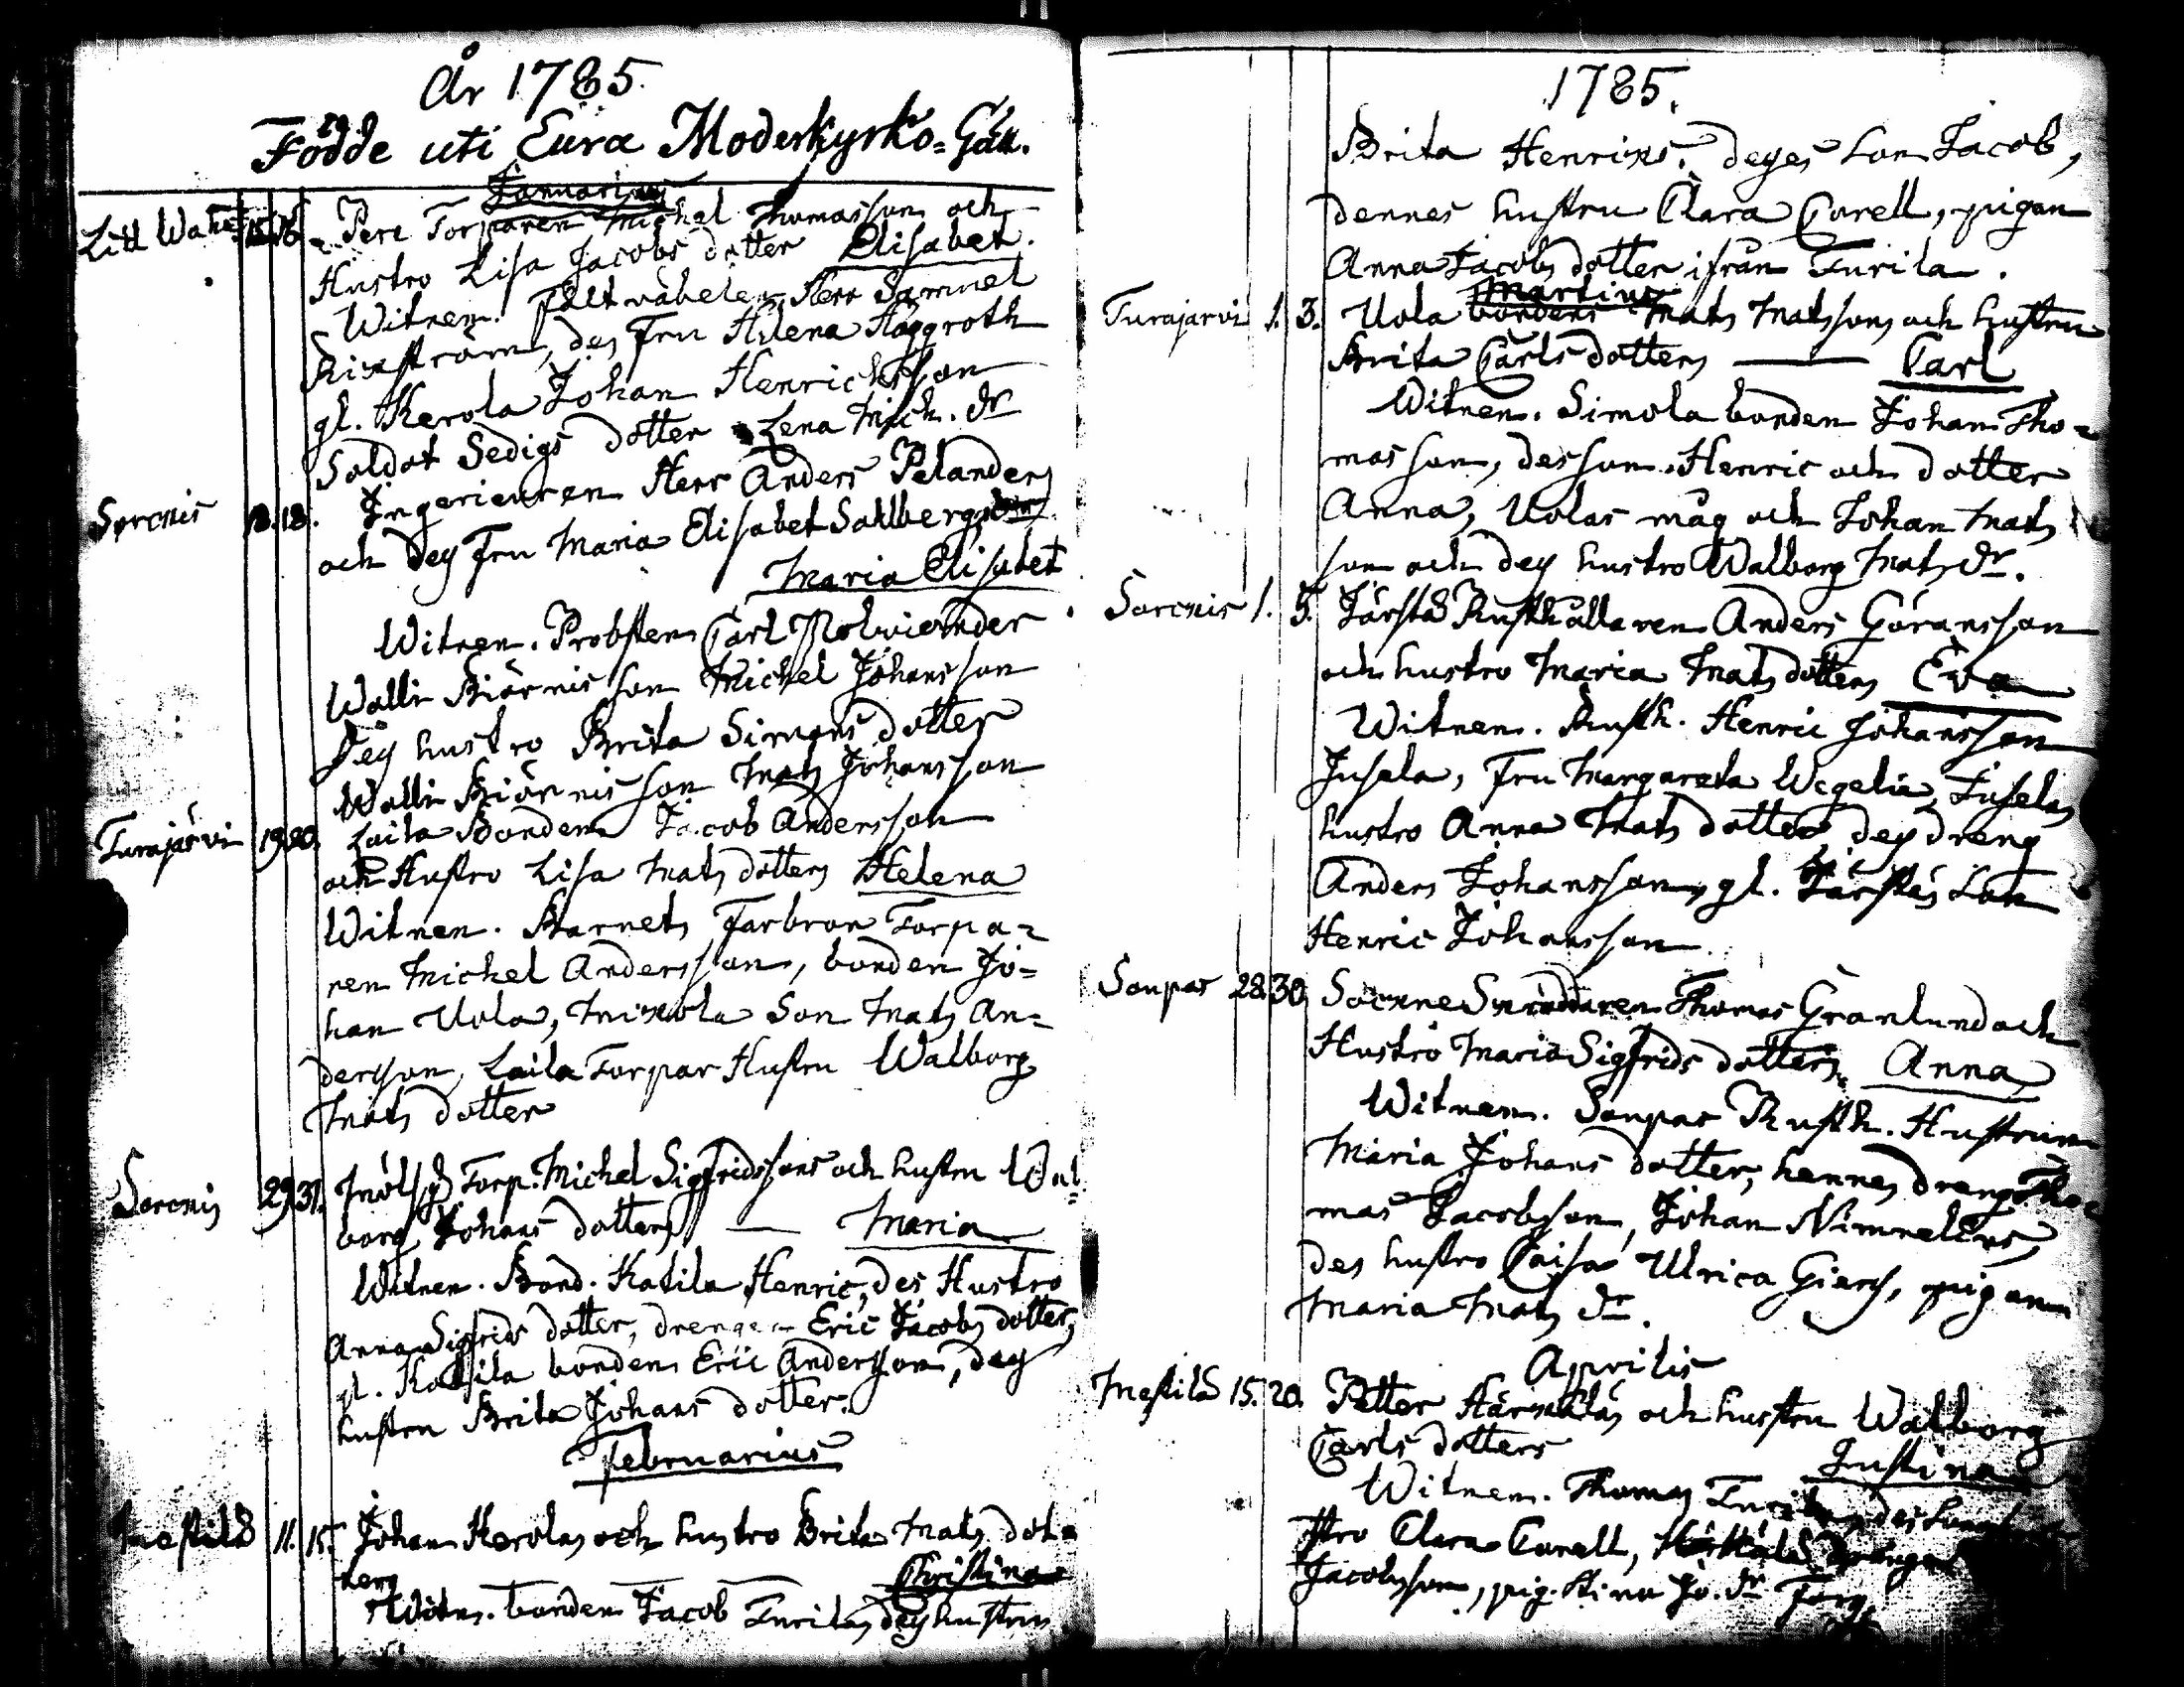 År 1785.
Födde uti Eura Moderkyrko=Gäll.
Januarius
Litt Wahe 15. 16. Pere Torparen Michel Thomasson och
Hustro Lisa Jacobs dotter Elisabet.
Witnen. Fältväbelen Herr Samuel
Rixström, des Fru Helena Häggroth
gl. Kerola Johan Henrichsson
Soldat Sedigs dotter Lena Mich. dr
Sorcnis 18. 18. Ingenieuren Herr Anders Pelanders
och dess Fru Maria Elisabet Sahlbergs
Maria Elisabet
Witnen. Probsten Carl
Walli Biörnis son Michel Johansson
Dess hustro Brita Simons dotter
Walli Biörnis son Mats Johansson
Turajärvi 19. 20. Laila Bonden Jacob Andersson
och Hustro Lisa Mats dotters Helena
Witnen. Barnets Farbror Torpa=
ren Michel Andersson, bonden Jo=
han Uola, Mixola Son Mats An=
dersson, Laila Torpar Hustru Walborg
Mats dotter
Sorcnis 29. 31. Torp. Michel Sigfridssons och hustru Wal=
borg Johans dotters — Maria
Witnen. Bond. Katila Henric, des Hustro
Anna Sigfrids dotter, drengen Eric Jacobs dotter,
gl. Kattila bonden Eric Andersson, dess
hustru Brita Johans dotter.
Februarius
Mestilä 11. 15. Johan Kerolas och hustro Brita Mats dot=
ters Christina
Witn. bonden Jacob Turilas dess hustru
1785.
Brita Henrics. dess Son Jacob,
dennes hustru Clara Carell, pigan
Anna Jacobs dotter ifrån Turila.
Martius
Turajarvi 1. 3. Uola bondens Mats Matssons och hustru
Brita Carls dotters — Carl
Witnen. Simola bonden Johan Tho=
masson, des son Henric och dotter
Anna, Uolas måg och Johan Mats
son och dess hustro Walborg Mats dr.
Sorcnis 1. 5. Järstä Rusthållaren Anders Göransson
och hustro Maria Mats dotters Eva
Witnen. Rusth. Henric Johansson
Jusela, Fru Margareta Wegelia, Juselas
hustro Anna Mats dotter, dess dreng
Anders Johansson, gl. Järstäs Son
Henric Johansson
Sonpas 28. 30. Sockne Skräddaren Thomas Granlund och
Hustro Maria Sigfrids dotters Anna
Witnen. Sonpas Rusth. Hustrun
Maria Johans dotter, hennes dreng Tho=
mas Jacobsson, Johan
des hustro Caisa Ulrica, pigan
Maria Mats dr.
Aprilis
Mestilä 15. 20. Petter och hustru Walborg
Carls dotters Justina
Witnen. Thomas
stro Clara Carell,
Jacobsson, pig. Stina Jo. dr